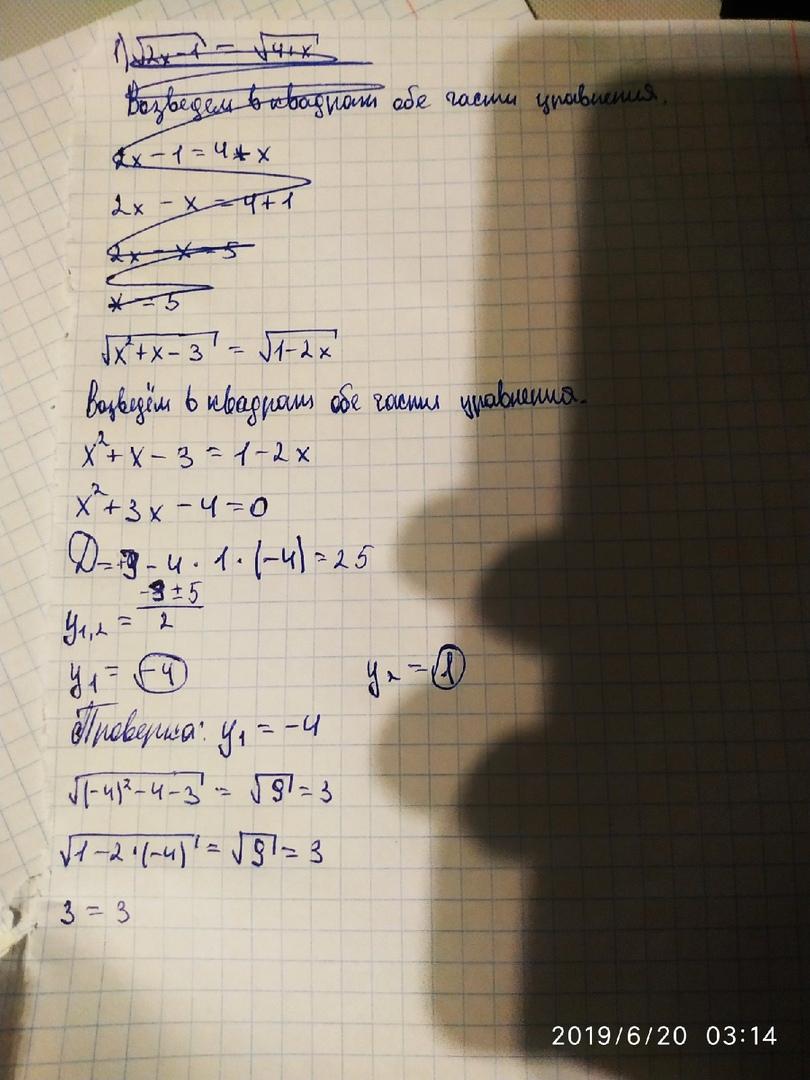 1) √2x-1 = √4+x
Возведем в квадрат обе части уравнения.
2x - 1 = 4 + x
2x - x = 4+1
2x - x = 5
x = 5
√x²+x-3 = √1-2x
Возведём в квадрат обе части уравнения.
x²+x-3 = 1-2x
x²+3x-4=0
D=9-4·1·(-4)=25
y1,2 = -3±5/2
y1 = -4 y2 = 1
Проверка: y1 = -4
√(-4)²-4-3 = √9 = 3
√1-2·(-4) = √9 = 3
3 = 3
2019/6/20 03:14